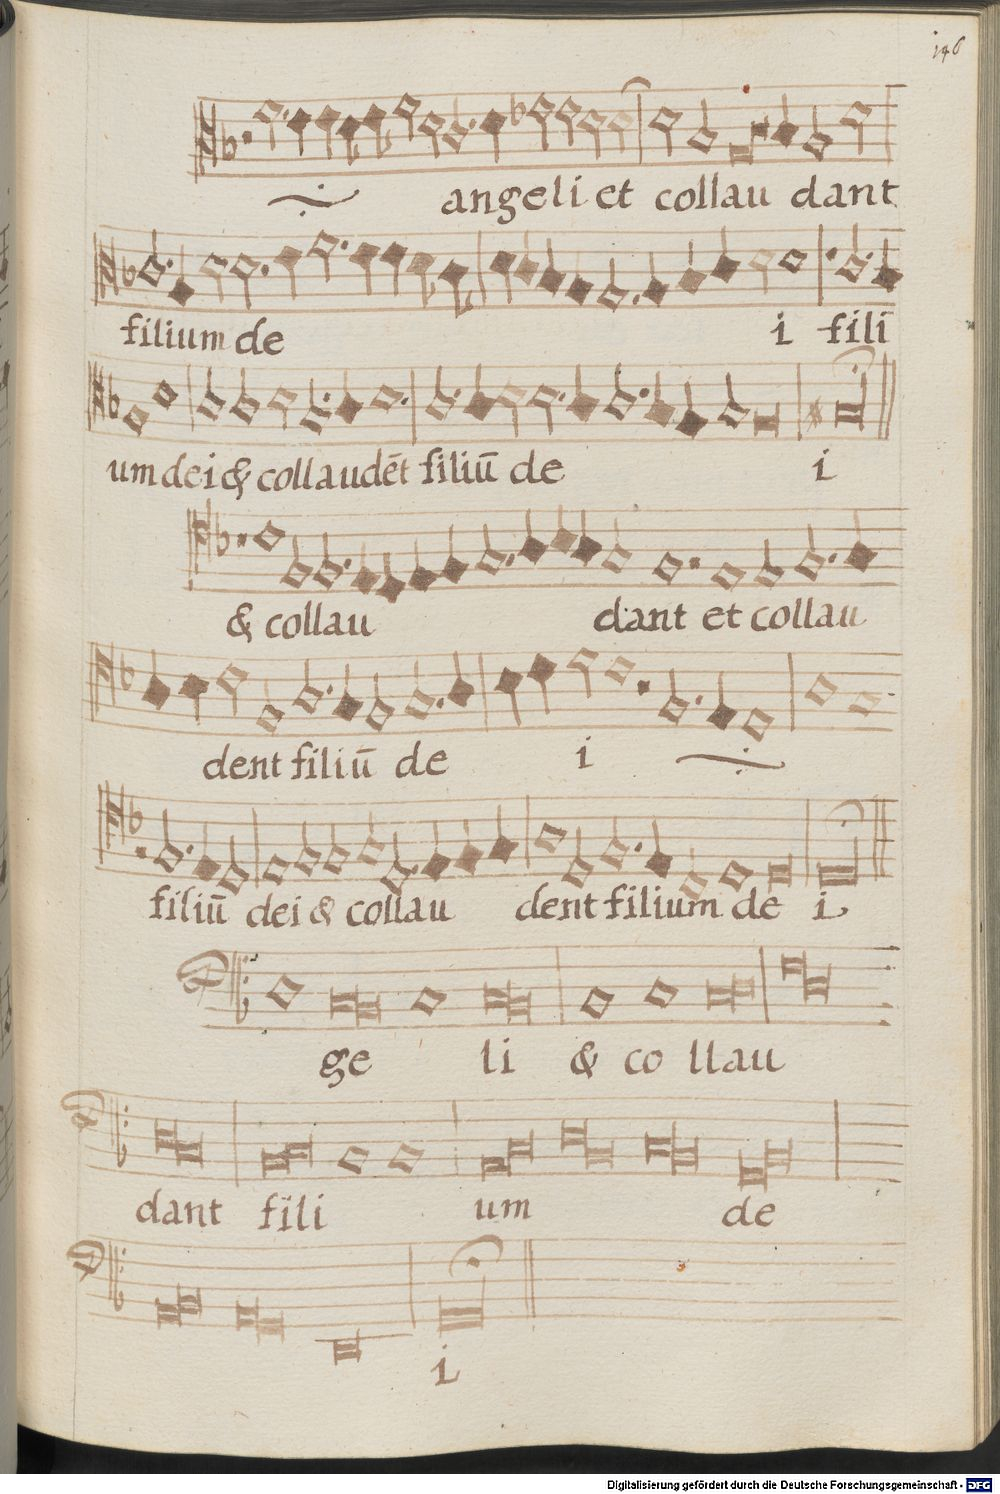 146
angeli et collau dant
filium de i fili
um dei & collaudēt filiū de i
& collau dant et collau
dent filiū de i
filiū dei & collau dent filium de i
ge li & co llau
dant fili um de
i
Digitalisierung gefördert durch die Deutsche Forschungsgemeinschaft - DFG